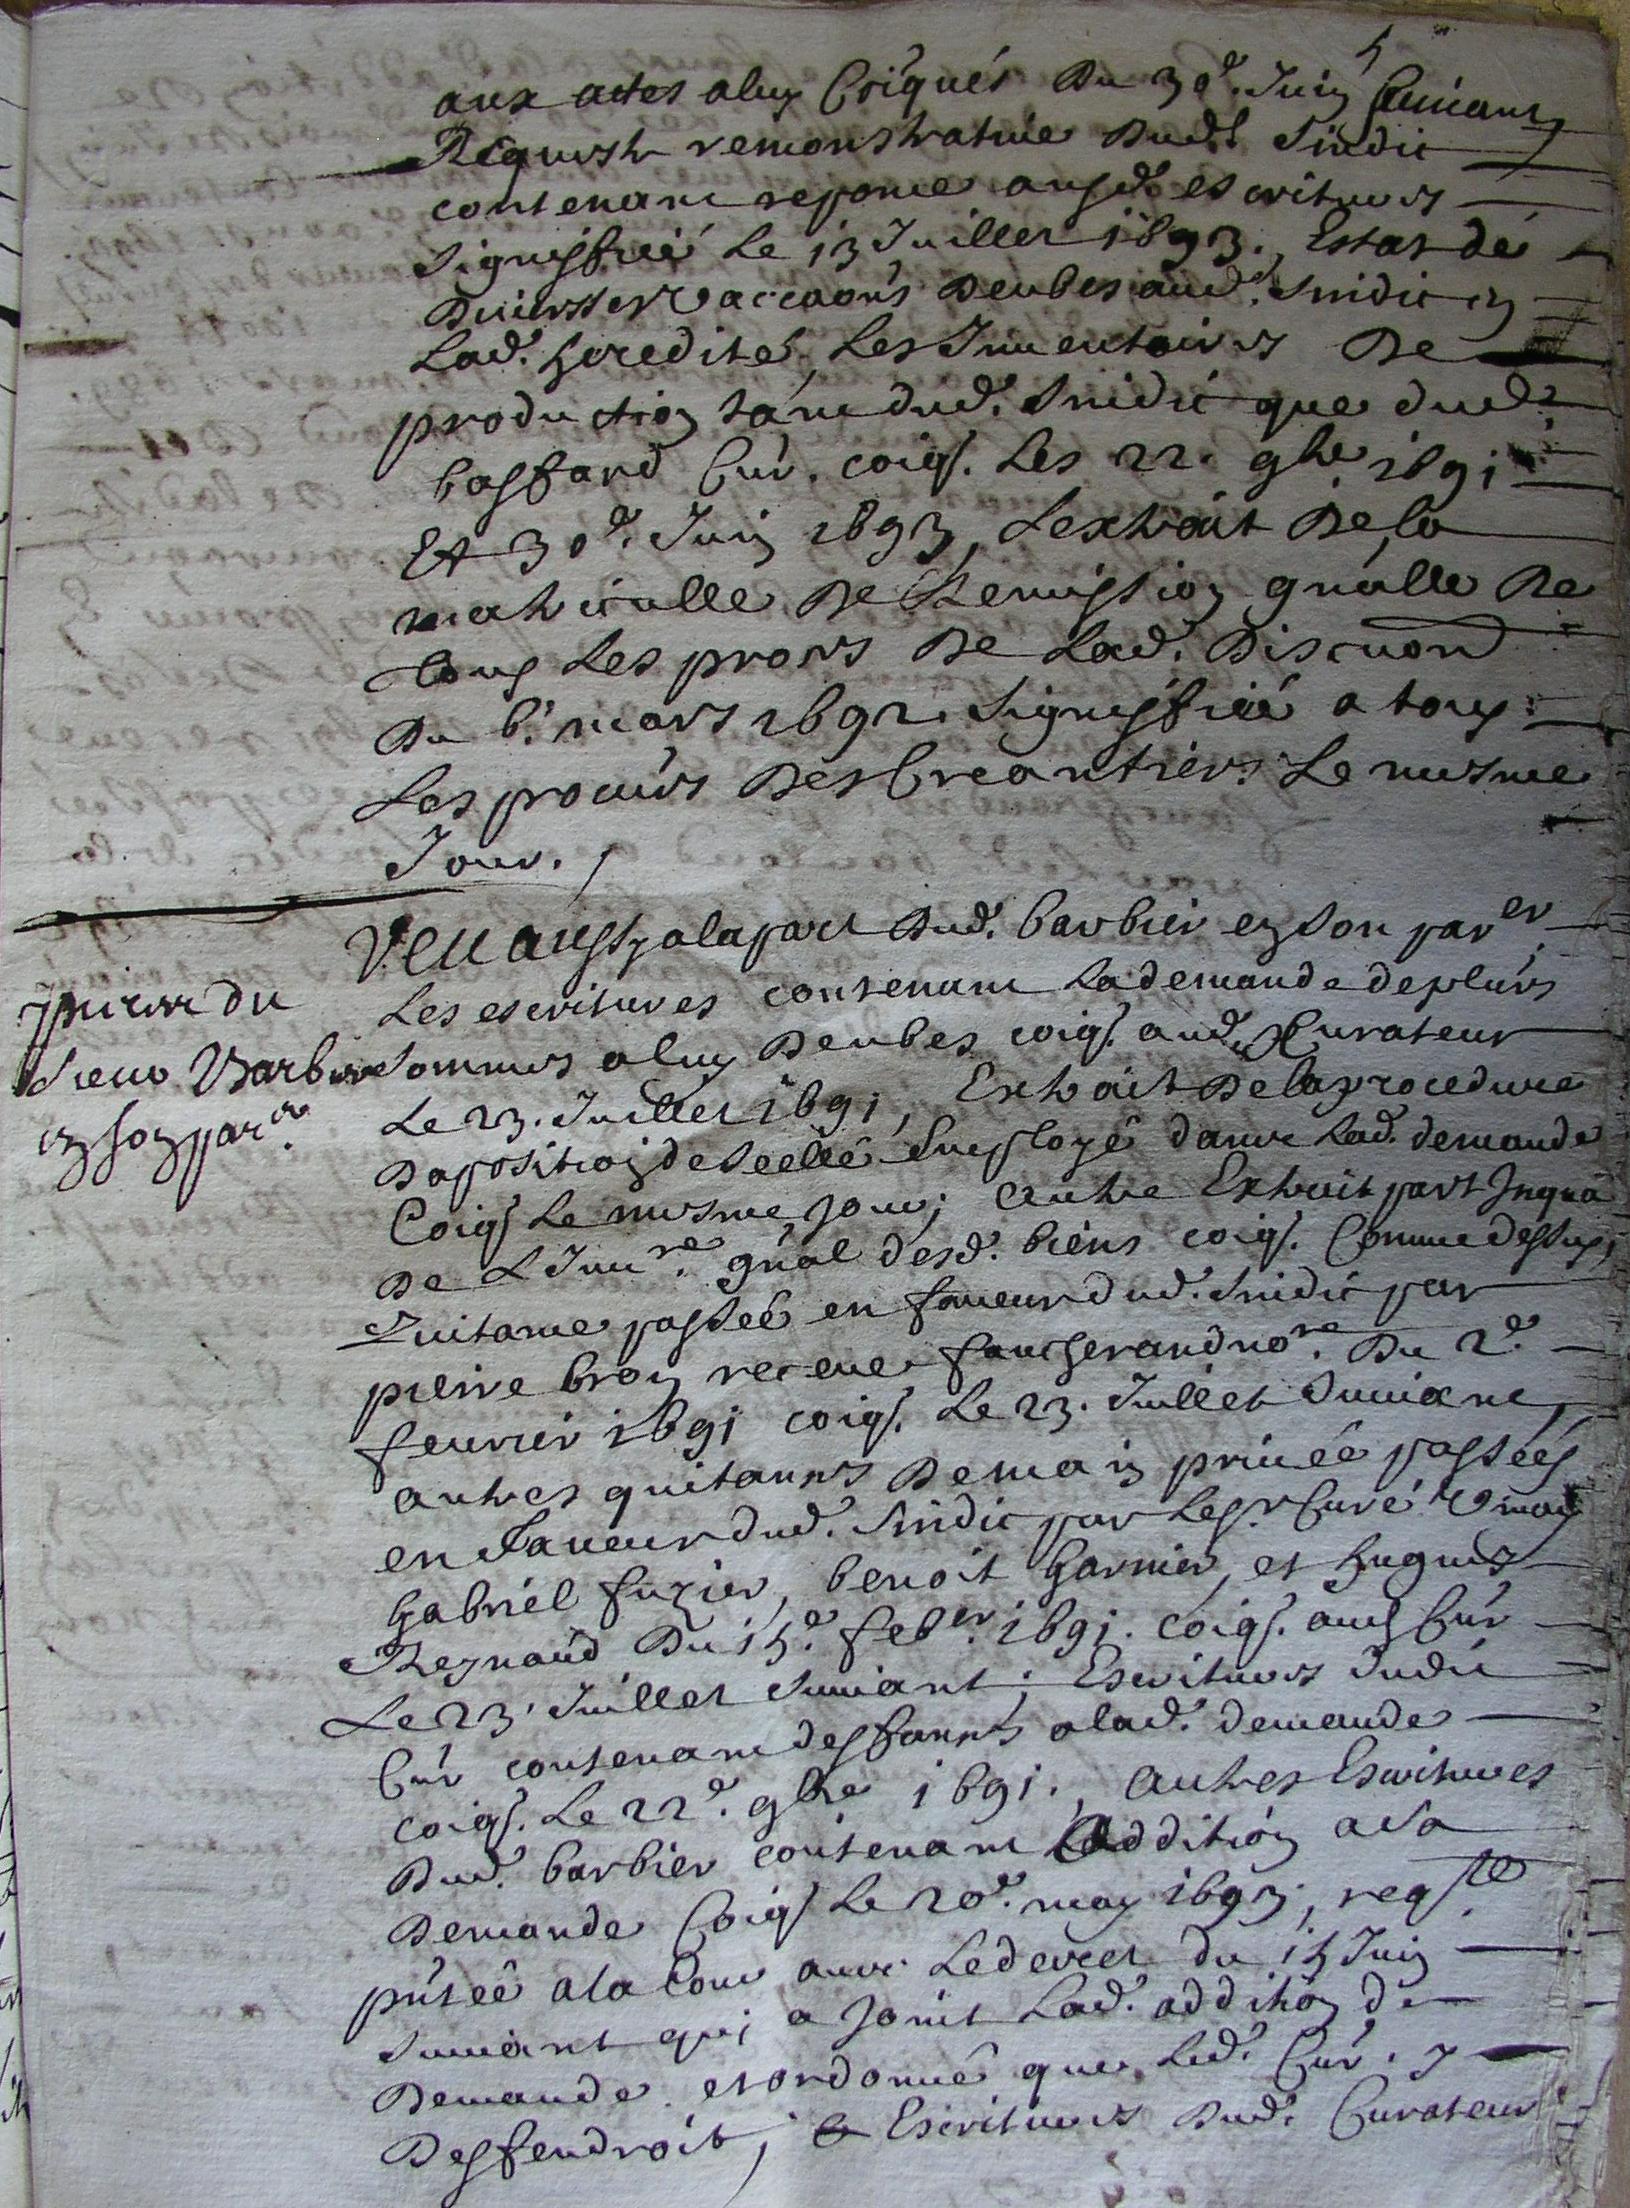 aux actes a luy coiqués du 30e. Juin suivant,
Requeste remonstrative dudt. sindic
contenant reponce ausd. escritures
signiffiée le 13 Juillet 1693., Estat dé
diverses vaccaôns deubes aud. sindic en
lad. heredité, Les Inventaires de
production tant dud. sindic que dud.
bastard Cur. coiqs. les 22. 9bre 1691
Et 30e. Juin 1693, Lextrait de la
matriculle de Remission gnalle de
tous les proces de lad. discuôn
du 6. mars 1692. signiffiée a tous
Les procurs des Creantiers Le mesme
Jour. /
Veu aussy a la part dud. barbier en son parer.
Les escritures contenant la demande de plurs
pieces du
sieur Barbier
en son parer.
sommes a luy deubes coiqs. aud. Curateur
Le 23. Juillet 1691, Extrait de la procedure
daposition de scellé Employé dans lad. demande
Coiqs le mesme jour; autre Extrait part Inqua
de L Invre. gnal desd. biens coiqs. Comme dessus;
Quitance passée en faveur dud. sindic par
pierre bron receue faucherand nore. du 2e.
fevrier 1691 coiqs. Le 23. Juillet suivant,
autres quitances de main privée passées
en faveur dud. sindic par les sr Curé
Gabriél fuzier, benoit Garnier, et hugues
Reynaud du 15e. feber. 1691. coiqs. aud Cur
Le 23. Juillet suivant; Escritures dudi
Cur contenant desfances a lad. demande
coiqs. Le 22e. 9bre 1691., autres Escritures
dud. barbier contenant Laddition a sa
demande Coiqs Le 20e. may 1693, reqste
pntéé a la Cour avec Le decret du 15 Juin
suivant qui a joint Lad. addition de
demande et ordonné que led. Cur. y
desfendroit; Escritures dud. Curateur